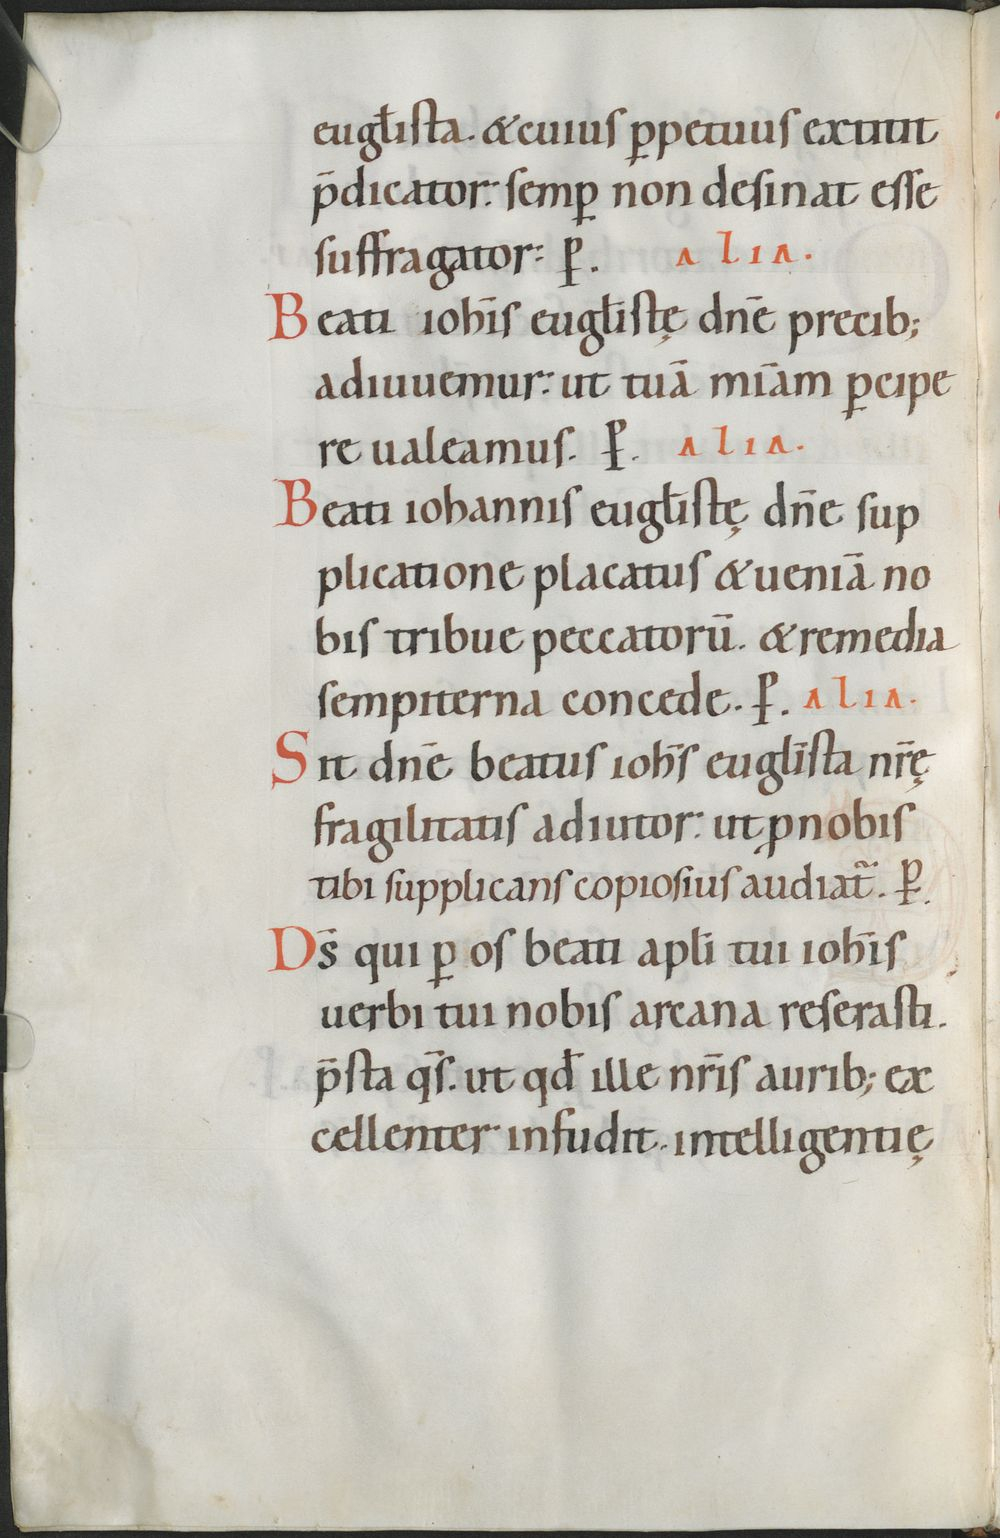 eugł̄ista. &cuius ꝑpetuus extitit
p̄dicator: semꝑ non desinat esse
suffragator: ꝑ. alia.
Beati ioħis eugł̄istę dn̄e precib;
adiuuemur: ut tuā mīam ꝑcipe
re ualeamus. ꝑ. alia.
Beati iohannis eugł̄istę dn̄e sup
plicatione placatus &ueniā no
bis tribue peccatorū. &remedia
sempiterna concede. ꝑ. alia.
Sit dn̄e beatus ioħs eugł̄ista nr̄ę
fragilitatis adiutor: ut ꝓnobis
tibi supplicans copiosius audiat᷑. ꝑ.
Ds̄ qui ꝑ os beati apłi tui ioħis
uerbi tui nobis arcana reserasti.
p̄sta qs̄. ut qđ ille nr̄is aurib; ex
cellenter infudit. intelligentię